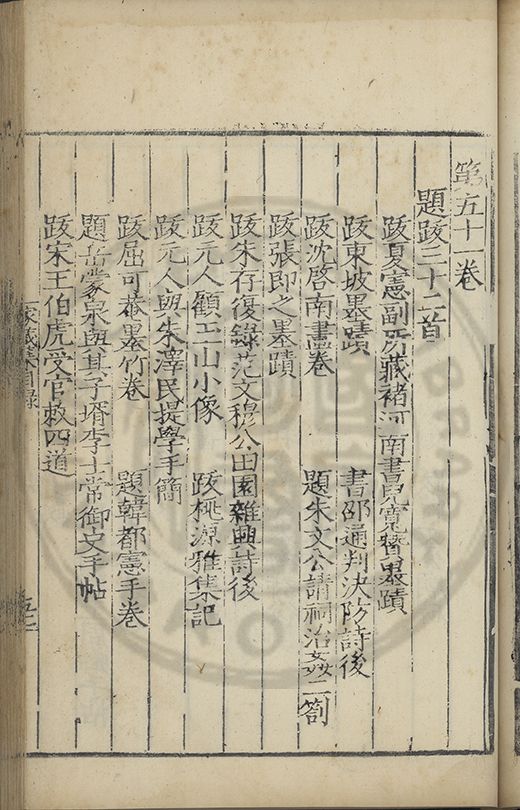 第五十一卷
題跋三十二首
跋夏憲副所藏褚河南書兒寬贊墨蹟
跋東坡墨蹟　書邵通判決防詩後
跋沈啓南畫卷　題朱文公請祠治姦二劄
跋張即之墨蹟
跋朱存復錄范文穆公田園雜興詩後
跋元人顧玉山小像　跋桃源雅集記
跋元人與朱澤民提學手簡
跋屈可菴墨竹卷　題韓都憲手卷
題岳蒙泉與其子壻李士常御史手帖
跋宋王伯虎受官敕四道
家藏集目錄